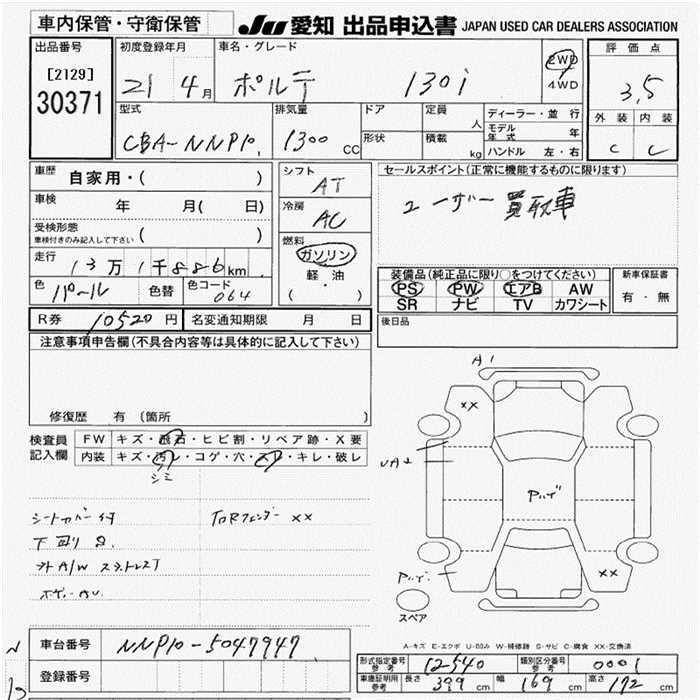 車内保管・守衛保管 JU 愛知 出品申込書 JAPAN USED CAR DEALERS ASSOCIATION
出品番号 初度登録年月 車名・グレード 2WD 評価点
[2129] 21 4月 ポルテ 130i 4WD 3,5
30371 型式 排気量 ドア 定員 人 ディーラー・並行 外装 内装
CBA-NNP10. 1300 CC 形状 積載 kg モデル年式 年 C C
ハンドル 左・右
車歴 自家用・( ) シフト AT セールスポイント(正常に機能するものに限ります)
車検 年 月( 日) 冷房 AC ユーザー買取車
受検形態 ( )
車検付きのみ記入して下さい
燃料 ガソリン
走行 13万1千886km 軽・油 装備品(純正品に限り○をつけてください) 新車保証書
色 パール 色替 色コード 064 ( ・ ) PS PW エアB AW 有・無
SR ナビ TV カワシート
R券 10520円 名変通知期限 月 日 後日品
注意事項申告欄(不具合内容等は具体的に記入して下さい)
修復歴 有(箇所 )
検査員 FW キズ・飛石・ヒビ割・リペア跡・X要
記入欄 内装 キズ・汚レ・コゲ・穴・スレ・キレ・破レ
シミ
A1
XX
Pハゲ
XX
シートカバー付 XX
スペア
車台番号 NNP10-5047947
登録番号
A-キズ E-エクボ U-凹み W-補修跡 S-サビ C-腐食 XX-交換済
形式指定番号 参考 12540 類別区分番号 参考 0001
車庫証明用 参考 長さ 399 cm 幅 169 cm 高さ 172 cm